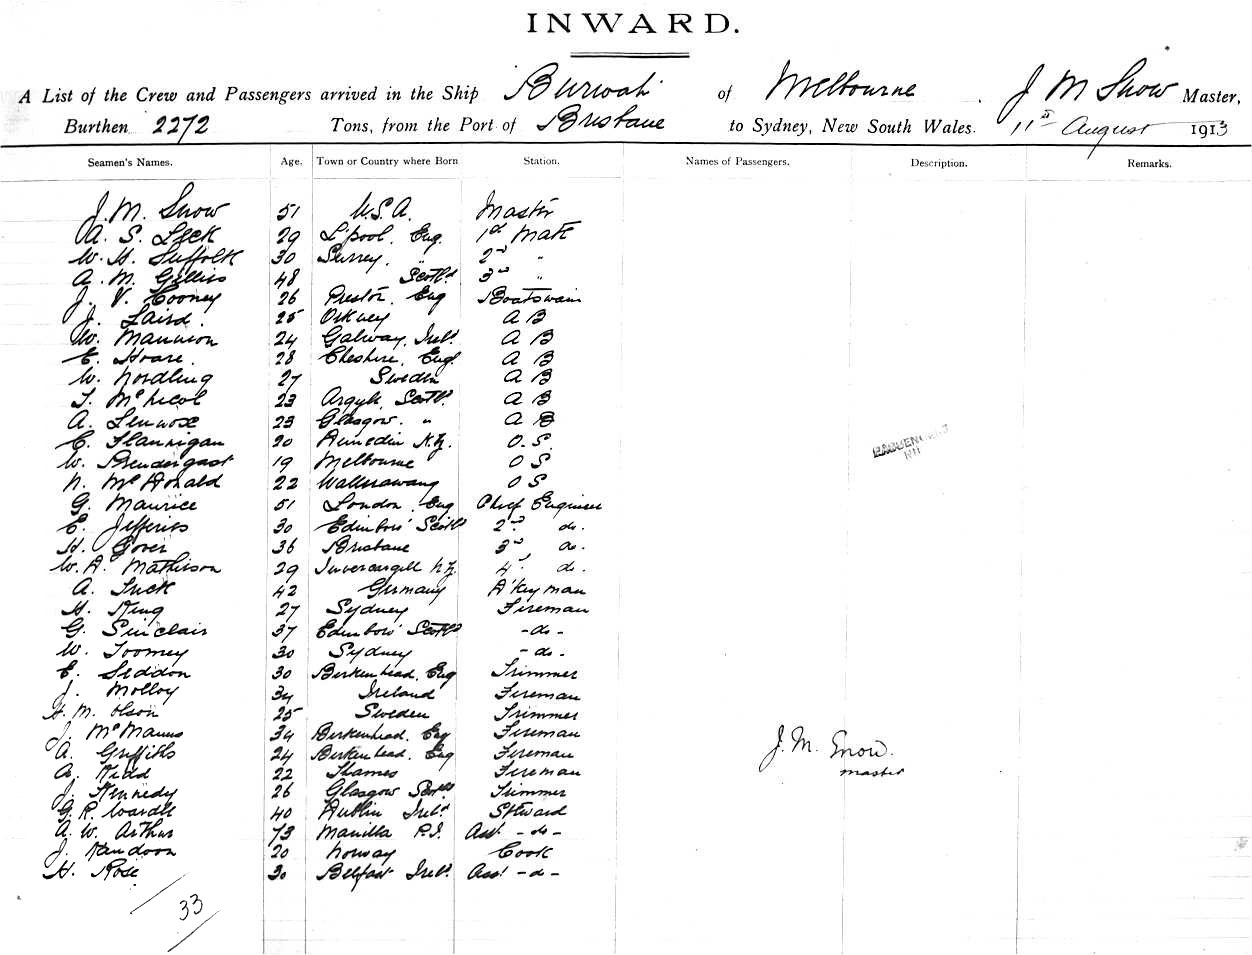 INWARD.
A List of the Crew and Passengers arrived in the Ship Burwah of Melbourne J M Snow Master,
Burthen 2272 Tons, from the Port of Brisbane to Sydney, New South Wales. 11th August 1913
Seamen's Names. Age. Town or Country where Born Station. Names of Passengers. Description. Remarks.
J. M. Snow 51 U.S.A. Master
A. S. Leck 29 L'pool. Eng. 1st Mate
W. H. Suffolk 30 Surrey. " 2nd "
A. M. Gillies 48 Scotld 3rd "
J. V. Cooney 26 Preston. Eng Boatswain
J. Laird. 25 Orkney A B
W. Mannion 24 Galway. Ireld. A B
E. Hoare. 28 Cheshire. Engl A B
W. Nordling 27 Sweden A B
T. McNicol 23 Argyle. Scotld. A B
A. Lennox 23 Glasgow. " A B
C. Flannigan 20 Dunedin N.Z. O. S.
W. Prendergast 19 Melbourne O S.
N. McDonald 22 Wallerawang O S
G. Maurice 51 London. Eng Chief Engineer
E. Jefferies 30 Edinboro' Scotld 2nd do.
H. Gover 36 Brisbane 3rd do.
W. A. Mathieson 29 Invercargill N.Z. 4th do.
A. Luck 42 Germany D'keyman
H. King 27 Sydney Fireman
G. Sinclair 37 Edinboro' Scotld -do-
W. Toomey 30 Sydney -do-
E. Seddon 30 Birkenhead. Eng Trimmer
J. Molloy 34 Ireland Fireman
H. M. Olson 25 Sweden Trimmer
J. McManus 34 Birkenhead. Eng Fireman
A. Griffiths 24 Birkenhead. Eng Fireman
A. Kidd 22 Thames Fireman
J. Kennedy 26 Glasgow Scotld. Trimmer
G. R. Wardle 40 Dublin Ireld. Steward
A. W. Arthur 73 Manilla P.I. Asst. -do-
J. Kandoon 20 Norway Cook
H. Rose 30 Belfast Ireld. Asst -d-
33
PASSENGERS
NIL
J. M. Snow.
master